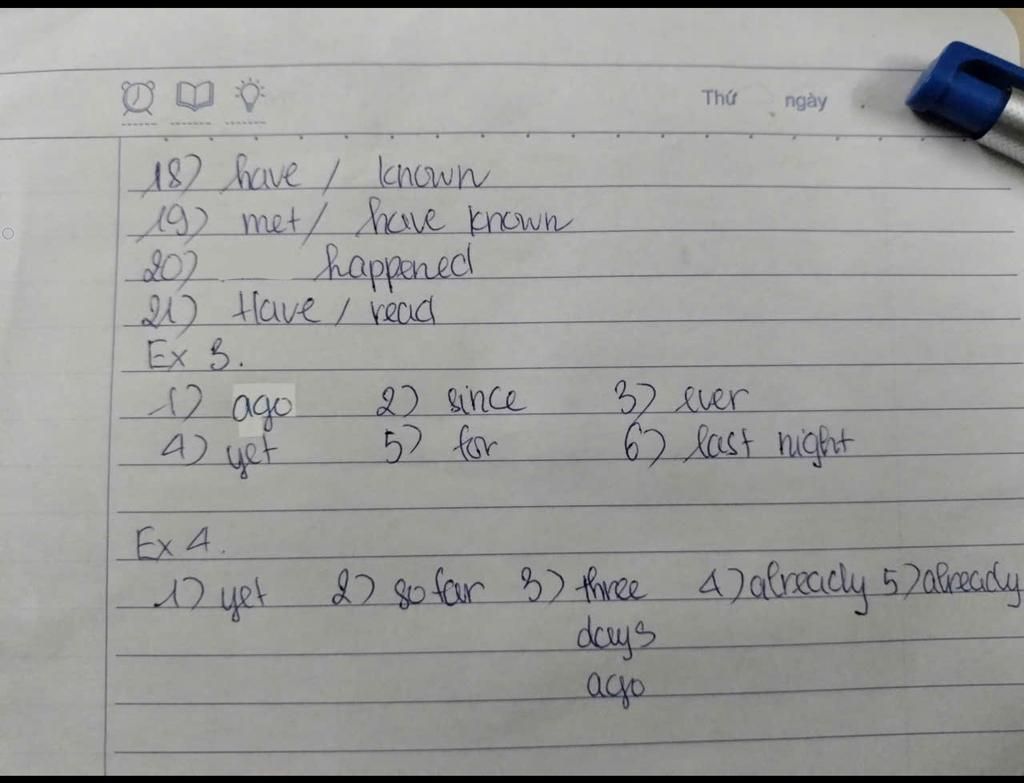 Thứ ngày
18) have / known
19) met / have known
20) happened
21) Have / read
Ex 3.
1) ago 2) since 3) ever
4) yet 5) for 6) last night
Ex 4.
1) yet 2) so far 3) three 4) already 5) already
days
ago